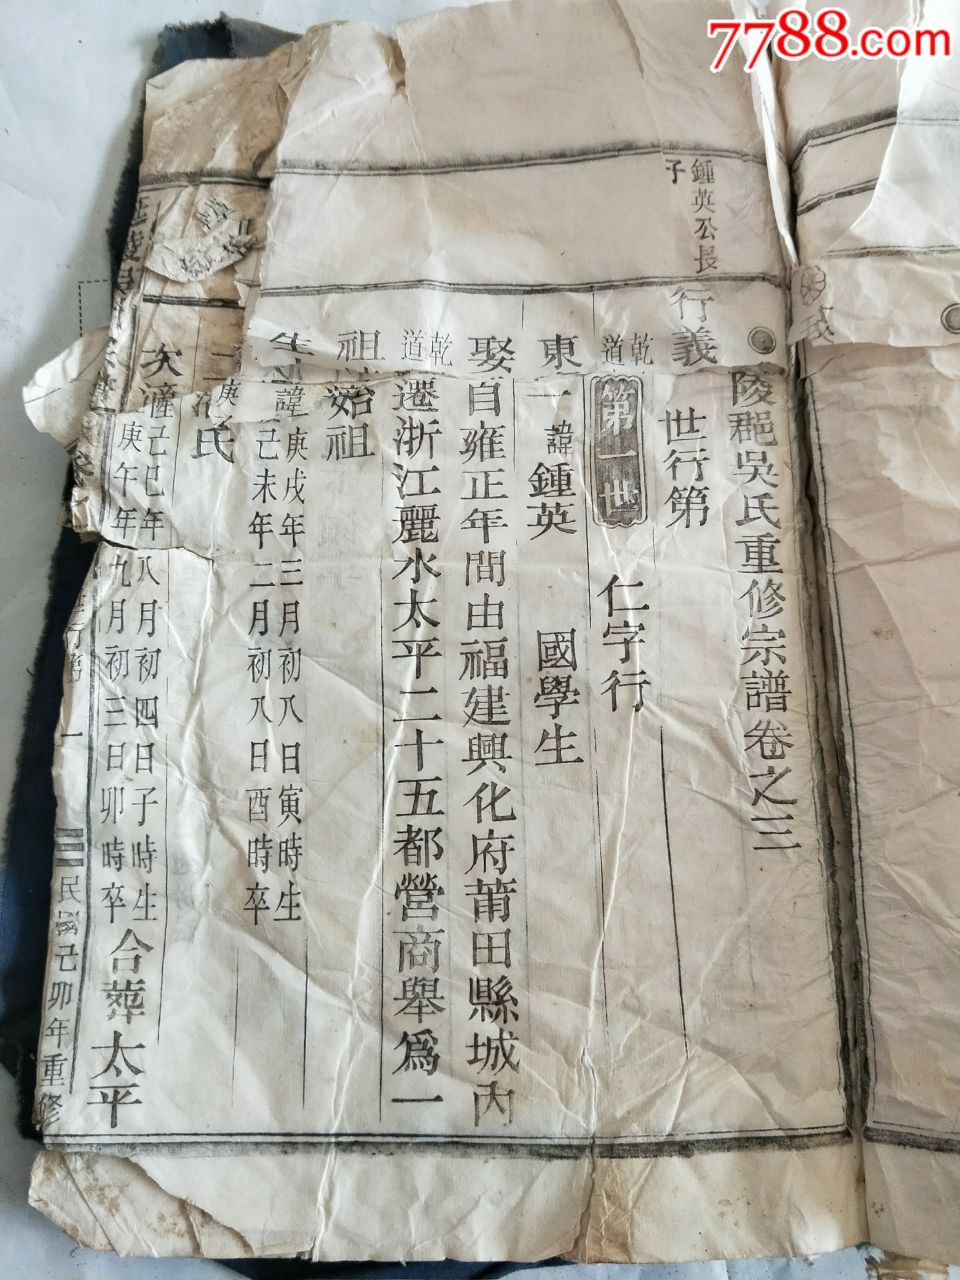 7788.com
陵郡吳氏重修宗譜卷之三
行義
世行第
鍾英公長
子
乾
道
第一世 仁字行
東一諱鍾英 國學生
娶自雍正年間由福建興化府莆田縣城內
乾
道
遷浙江麗水太平二十五都營商舉為一
祖
始祖
諱庚戌年三月初八日寅時生
己未年二月初八日酉時卒
氏
次
己巳年八月初四日子時生
庚午年九月初三日卯時卒
合葬太平
民國己卯年重修